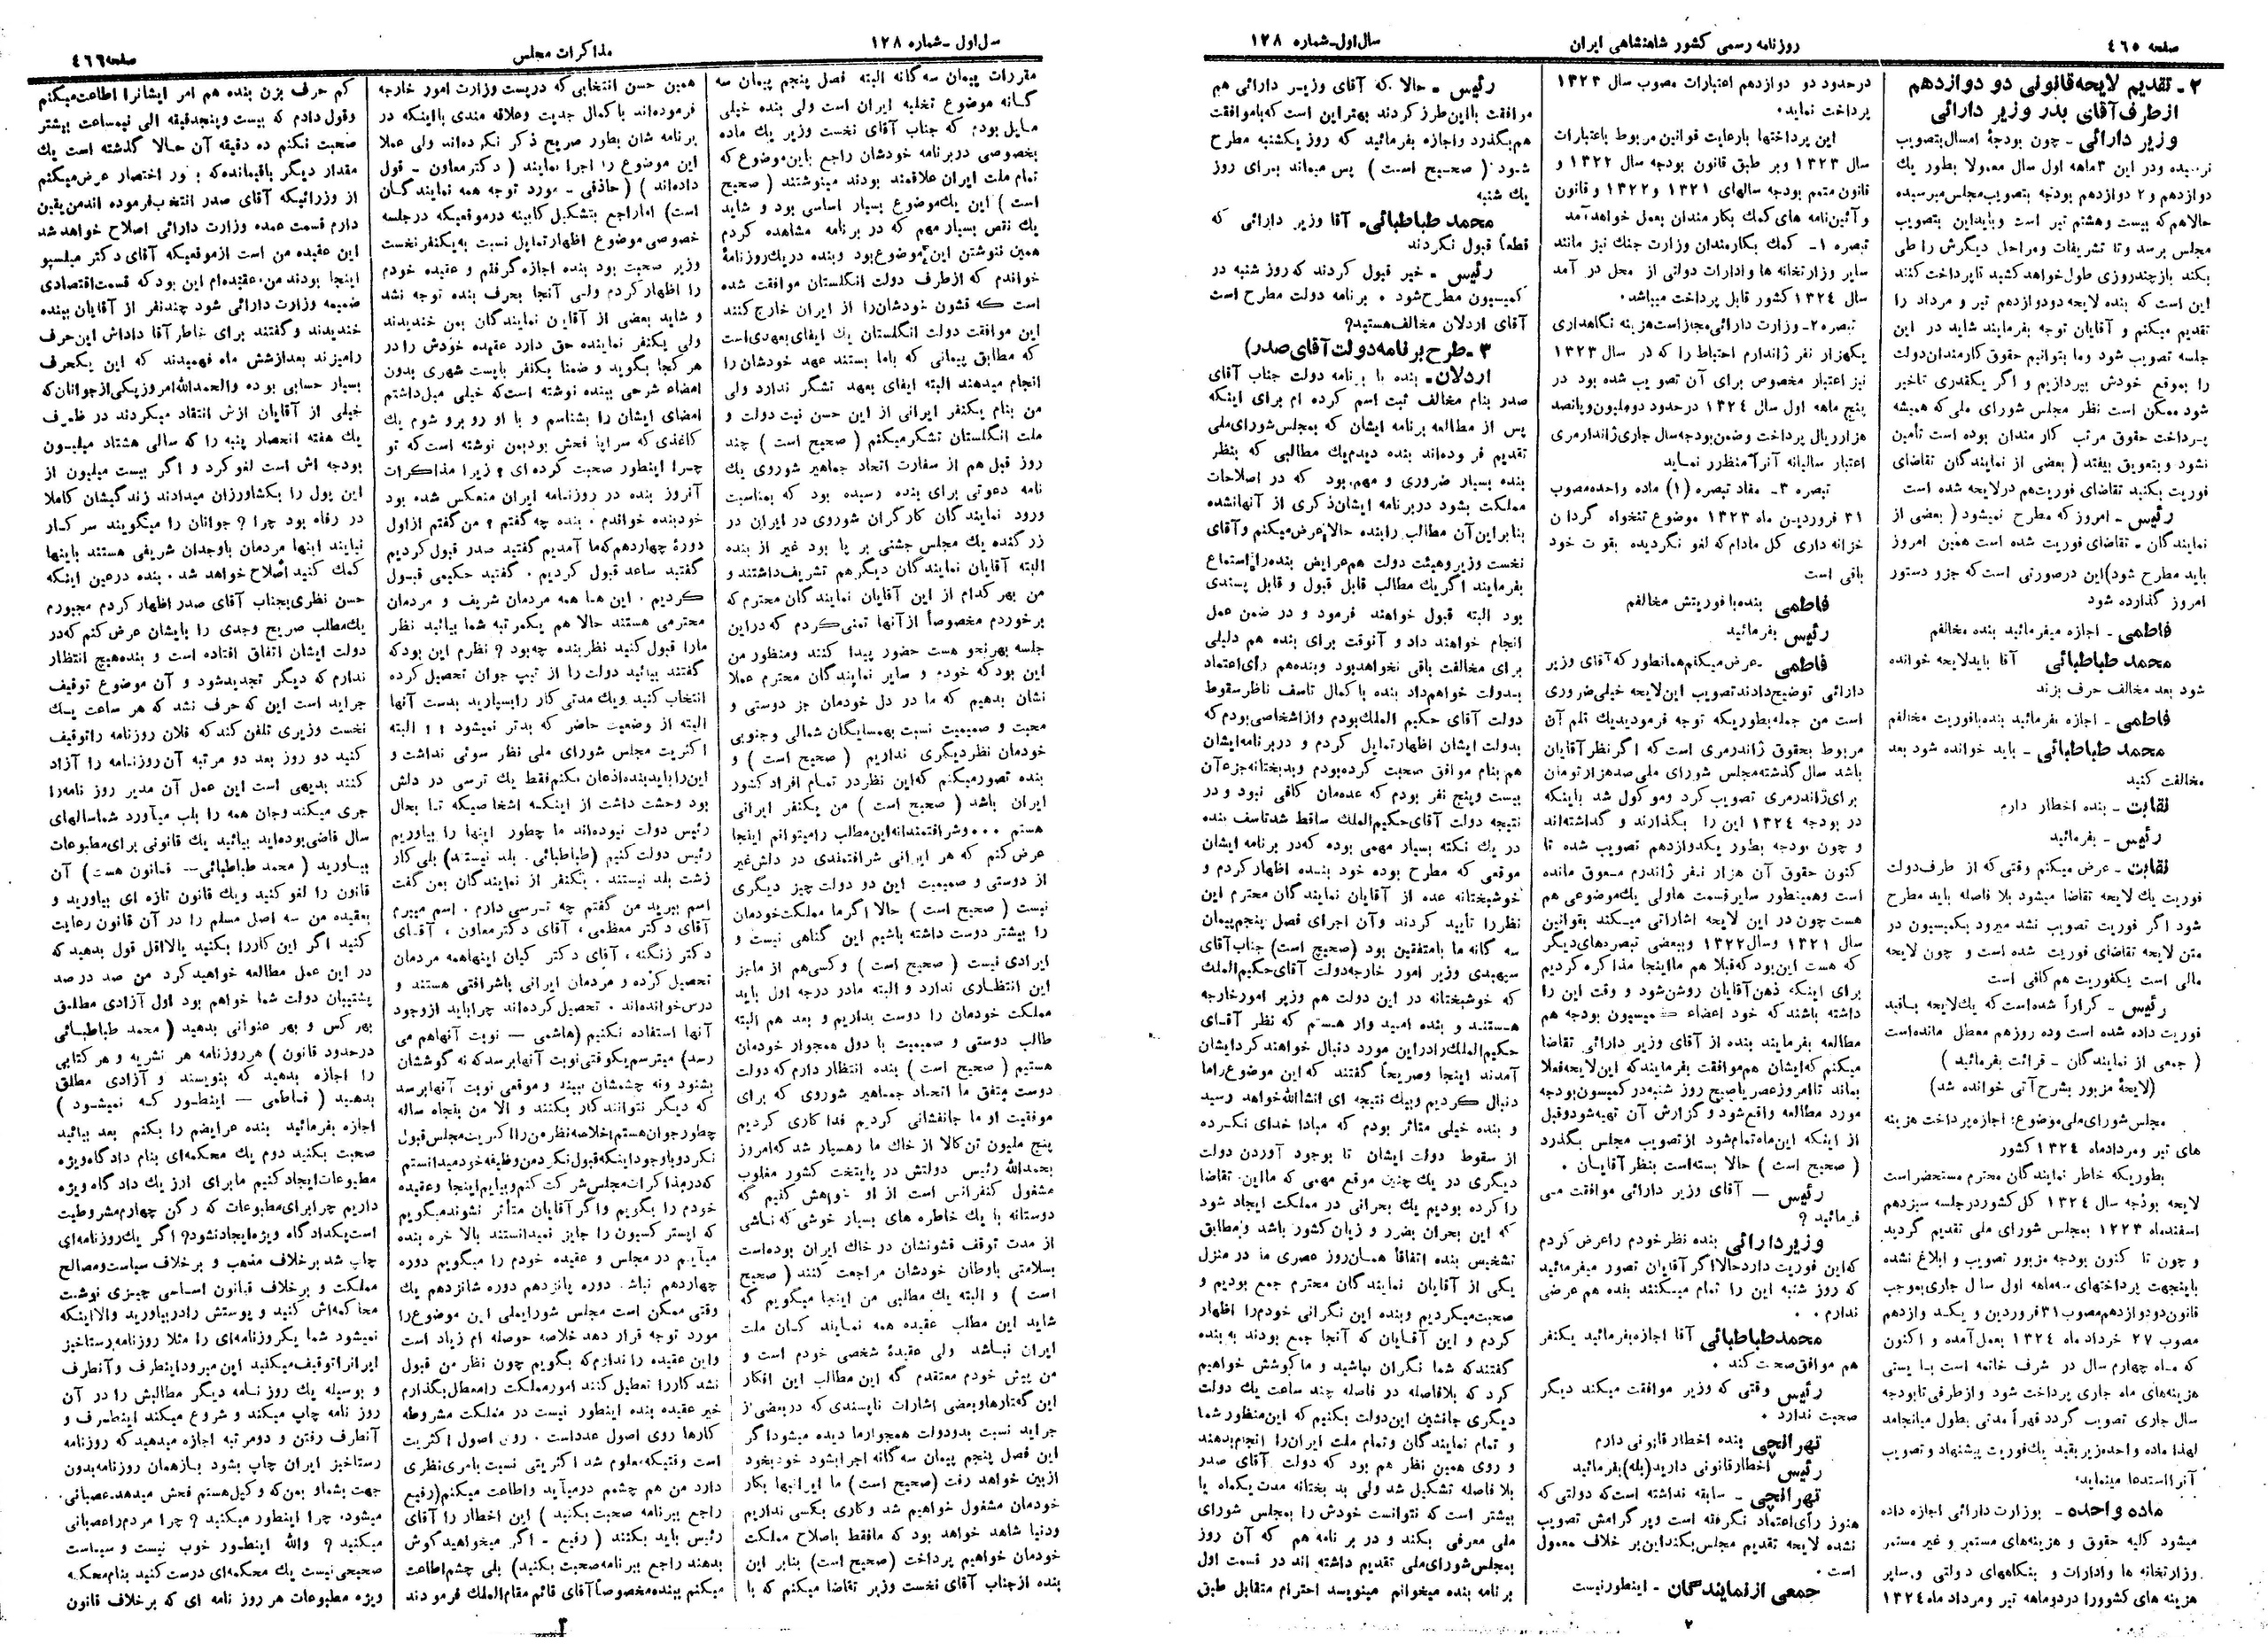 صفحه ٤٦٥
روزنامه رسمی کشور شاهنشاهی ایران
سال اول-شماره ۱۲۸
۲ـ تقدیم لایحه قانونی دو دوازدهم
از طرف آقای بدر وزیر دارائی
وزیر دارائی ـ چون بودجهٔ امسال بتصویب
نرسیده ودر این ۳ماهه اول سال معمولا بطور یك
دوازدهم و۲ دوازدهم بودجه بتصویب مجلس میرسیده
حالاهم که بیست وهشتم تیر است وباید این بتصویب
مجلس برسد وتا تشریفات ومراحل دیگرش را طی
بکند باز چندروزی طول خواهد کشید تا پرداخت کنند
این است که بنده لایحه دودوازدهم تیر و مرداد را
تقدیم میکنم و آقایان توجه بفرمایند شاید در این
جلسه تصویب شود وما بتوانیم حقوق کارمندان دولت
را بموقع خودش بپردازیم و اگر یکقدری تاخیر
شود ممکن است نظر مجلس شورای ملی که همیشه
بپرداخت حقوق مرتب کارمندان بوده است تأمین
نشود و بتعویق بیفتد ( بعضی از نمایندگان تقاضای
فوریت بکنید تقاضای فوریت هم در لایحه شده است
رئیس ـ امروز که مطرح نمیشود ( بعضی از
نمایندگان ـ تقاضای فوریت شده است همین امروز
باید مطرح شود)این درصورتی است که جزو دستور
امروز گذارده شود
فاطمی ـ اجازه میفرمائید بنده مخالفم
محمد طباطبائی آقا باید لایحه خوانده
شود بعد مخالف حرف بزند
فاطمی ـ اجازه بفرمائید بنده بافوریت مخالفم
محمد طباطبائی ـ باید خوانده شود بعد
مخالفت کنید
نقابت ـ بنده اخطار دارم
رئیس ـ بفرمائید
نقابت ـ عرض میکنم وقتی که از طرف دولت
فوریت یك لایحه تقاضا میشود بلا فاصله باید مطرح
شود اگر فوریت تصویب نشد میرود بکمیسیون در
متن لایحه تقاضای فوریت شده است و چون لایحه
مالی است یکفوریت هم کافی است
رئیس ـ کراراً شده است که یك لایحه باقید
فوریت داده شده است وده روزهم معطل مانده است
( جمعی از نمایندگان ـ قرائت بفرمائید )
(لایحهٔ مزبور بشرح آتی خوانده شد)
مجلس شورای ملی موضوع: اجازه پرداخت هزینه
های تیر ومرداد ماه ۱۳۲٤ کشور
بطوریکه خاطر نمایندگان محترم مستحضر است
لایحه بودجه سال ۱۳۲٤ کل کشور در جلسه سیزدهم
اسفندماه ۱۳۲۳ بمجلس شورای ملی تقدیم گردید
و چون تا کنون بودجه مزبور تصویب و ابلاغ نشده
باینجهت پرداختهای سه ماهه اول سال جاری بموجب
قانون دو دوازدهم مصوب ۳۱فروردین و یکدوازدهم
مصوب ۲۷ خرداد ماه ۱۳۲٤ بعمل آمده و اکنون
که ماه چهارم سال در شرف خاتمه است بایستی
هزینه‌های ماه جاری پرداخت شود واز طرفی تا بودجه
سال جاری تصویب گردد قهراً مدتی بطول میانجامد
لهذا ماده واحده زیر بقید یك فوریت پیشنهاد و تصویب
آنرا استدعا مینماید:
ماده واحده ـ بوزارت دارائی اجازه داده
میشود کلیه حقوق و هزینه‌های مستمر و غیر مستمر
وزارتخانه ها وادارات و بنگاههای دولتی وسایر
هزینه های کشور را در دوماهه تیر ومرداد ماه ۱۳۲٤
در حدود دو دوازدهم اعتبارات مصوب سال ۱۳۲۳
پرداخت نماید.
این پرداختها بارعایت قوانین مربوط باعتبارات
سال ۱۳۲۳ وبر طبق قانون بودجه سال ۱۳۲۲ و
قانون متمم بودجه سالهای ۱۳۲۱ و۱۳۲۲ و قانون
و آئین‌نامه های کمك بکارمندان بعمل خواهد آمد
تبصره ۱ـ کمك بکارمندان وزارت جنك نیز مانند
سایر وزارتخانه ها وادارات دولتی از محل در آمد
سال ۱۳۲٤ کشور قابل پرداخت میباشد.
تبصره ۲ـ وزارت دارائی مجاز است هزینه نگاهداری
یکهزار نفر ژاندارم احتیاط را که در سال ۱۳۲۳
نیز اعتبار مخصوص برای آن تصویب شده بود در
پنج ماهه اول سال ۱۳۲٤ در حدود دو ملیون و پانصد
هزار ریال پرداخت و ضمن بودجه سال جاری ژاندارمری
اعتبار سالیانه آنرا منظور نماید
تبصره ۳ـ مفاد تبصره (۱) ماده واحده مصوب
۳۱ فروردین ماه ۱۳۲۳ موضوع تنخواه گردان
خزانه داری کل مادام که لغو نگردیده بقوت خود
باقی است
فاطمی بنده با فوریتش مخالفم
رئیس بفرمائید
فاطمی ـ عرض میکنم همانطور که آقای وزیر
دارائی توضیح دادند تصویب این لایحه خیلی ضروری
است من جمله بطوریکه توجه فرمودید یك قلم آن
مربوط بحقوق ژاندرمری است که اگر نظر آقایان
باشد سال گذشته مجلس شورای ملی صدهزار تومان
برای ژاندرمری تصویب کرد وموکول شد باینکه
در بودجه ۱۳۲٤ این را بگذارند و گذاشته‌اند
و چون بودجه بطور یکدوازدهم تصویب شده تا
کنون حقوق آن هزار نفر ژاندرم معوق مانده
است وهمینطور سایر قسمت ها ولی یك موضوعی هم
هست چون در این لایحه اشاراتی میکند بقوانین
سال ۱۳۲۱ وسال ۱۳۲۲ وببعضی تبصره‌های دیگر
که هست این بود که قبلا هم ما اینجا مذاکره کردیم
برای اینکه ذهن آقایان روشن شود و وقت این را
داشته باشند که خود اعضاء کمیسیون بودجه هم
مطالعه بفرمایند بنده از آقای وزیر دارائی تقاضا
میکنم که ایشان هم موافقت بفرمایند که این لایحه فعلا
بماند تا امروز عصر یا صبح روز شنبه در کمیسیون بودجه
مورد مطالعه واقع شود و گزارش آن تهیه شود وقبل
از اینکه این ماه تمام شود از تصویب مجلس بگذرد
( صحیح است ) حالا بسته است بنظر آقایان .
رئیس ـ آقای وزیر دارائی موافقت می
فرمائید ؟
وزیر دارائی بنده نظر خودم را عرض کردم
که این فوریت دارد حالا اگر آقایان تصور میفرمائید
که روز شنبه این را تمام میکنند بنده هم عرضی
ندارم .
محمد طباطبائی آقا اجازه بفرمائید یکنفر
هم موافق صحبت کند .
رئیس وقتی که وزیر موافقت میکند دیگر
صحبت ندارد .
تهرانچی بنده اخطار قانونی دارم
رئیس اخطار قانونی دارید (بله) بفرمائید
تهرانچی ـ سابقه نداشته است که دولتی که
هنوز رأی اعتماد نگرفته است وپرگرامش تصویب
نشده لایحه تقدیم مجلس بکند این بر خلاف معمول
است .
جمعی از نمایندگان ـ اینطور نیست
رئیس ـ حالا که آقای وزیر دارائی هم
موافقت بااین طرز کردند بهتر این است که باموافقت
هم بگذرد واجازه بفرمائید که روز یکشنبه مطرح
شود ( صحیح است ) پس میماند برای روز
یك شنبه
محمد طباطبائی ـ آقا وزیر دارائی که
قطعاً قبول نکردند
رئیس ـ خیر قبول کردند که روز شنبه در
کمیسیون مطرح شود . برنامه دولت مطرح است
آقای اردلان مخالف هستید؟
۳ ـ طرح برنامه دولت آقای صدر)
اردلان ـ بنده با برنامه دولت جناب آقای
صدر بنام مخالف ثبت اسم کرده ام برای اینکه
پس از مطالعه برنامه ایشان که بمجلس شورای ملی
تقدیم فرموده‌اند بنده دیدم یك مطالبی که بنظر
بنده بسیار ضروری و مهم بود که در اصلاحات
مملکت بشود در برنامه ایشان ذکری از آنها نشده
بنابراین آن مطالب را بنده حالا عرض میکنم وآقای
نخست وزیر وهیئت دولت هم عرایض بنده را استماع
بفرمایند اگر یك مطالب قابل قبول و قابل پسندی
بود البته قبول خواهند فرمود و در ضمن عمل
انجام خواهند داد و آنوقت برای بنده هم دلیلی
برای مخالفت باقی نخواهد بود وبنده هم رأی اعتماد
بدولت خواهم داد بنده با کمال تاسف ناظر سقوط
دولت آقای حکیم الملك بودم واز اشخاصی بودم که
بدولت ایشان اظهار تمایل کردم و در برنامه ایشان
هم بنام موافق صحبت کرده بودم وبدبختانه جزء آن
بیست وپنج نفر بودم که عده‌مان کافی نبود و در
نتیجه دولت آقای حکیم الملك ساقط شد تاسف بنده
در یك نکته بسیار مهمی بوده که در برنامه ایشان
موقعی که مطرح بوده خود بنده اظهار کردم و
خوشبختانه عده از آقایان نمایندگان محترم این
نظر را تأیید کردند وآن اجرای فصل پنجم پیمان
سه گانه ما بامتفقین بود (صحیح است) جناب آقای
سپهبدی وزیر امور خارجه دولت آقای حکیم الملك
که خوشبختانه در این دولت هم وزیر امور خارجه
هستند و بنده امیدوار هستم که نظر آقای
حکیم الملك را در این مورد دنبال خواهند کرد ایشان
آمدند اینجا وصریحاً گفتند که این موضوع را ما
دنبال کردیم وبیك نتیجه ای انشاالله خواهد رسید
و بنده خیلی متاثر بودم که مبادا خدای نکرده
از سقوط دولت ایشان تا بوجود آوردن دولت
دیگری در یك چنین موقع مهمی که ما این تقاضا
را کرده بودیم یك بحرانی در مملکت ایجاد شود
که این بحران بضرر و زیان کشور باشد و مطابق
تشخیص بنده اتفاقاً همان روز عصری ما در منزل
یکی از آقایان نمایندگان محترم جمع بودیم و
صحبت میکردیم وبنده این نگرانی خودم را اظهار
کردم و این آقایان که آنجا جمع بودند به بنده
گفتند که شما نگران نباشید و ما کوشش خواهیم
کرد که بلافاصله دو فاصله چند ساعت یك دولت
دیگری جانشین این دولت بکنیم که این منظور شما
و تمام نمایندگان وتمام ملت ایران را انجام بدهند
و روی همین نظر هم بود که دولت آقای صدر
بلا فاصله تشکیل شد ولی بدبختانه مدت یکماه یا
بیشتر است که نتوانست خودش را بمجلس شورای
ملی معرفی بکند و در برنامه هم که آن روز
بمجلس شورای ملی تقدیم داشته اند در قسمت اول
برنامه بنده میخوانم مینویسد احترام متقابل طبق
۲
سال اول ـ شماره ۱۲۸
مذاکرات مجلس
صفحه ٤٦٦
مقررات پیمان سه گانه البته فصل پنجم پیمان سه
گانه موضوع تخلیه ایران است ولی بنده خیلی
مایل بودم که جناب آقای نخست وزیر یك ماده
بخصوصی در برنامه خودشان راجع باین موضوع که
تمام ملت ایران علاقمند بودند مینوشتند ( صحیح
است ) این یك موضوع بسیار اساسی بود و شاید
یك نقص بسیار مهم که در برنامه مشاهده کردم
همین ننوشتن این موضوع بود وبنده در یك روزنامهٔ
خواندم که از طرف دولت انگلستان موافقت شده
است که قشون خودشان را از ایران خارج کنند
این موافقت دولت انگلستان یك ایفای بعهدی است
که مطابق پیمانی که باما بستند عهد خودشان را
انجام میدهند البته ایفای بعهد تشکر ندارد ولی
من بنام یکنفر ایرانی از این حسن نیت دولت و
ملت انگلستان تشکر میکنم ( صحیح است ) چند
روز قبل هم از سفارت اتحاد جماهیر شوروی یك
نامه دعوتی برای بنده رسیده بود که بمناسبت
ورود نمایندگان کارگران شوروی در ایران در
زرگنده یك مجلس جشنی بر پا بود غیر از بنده
البته آقایان نمایندگان دیگر هم تشریف داشتند و
من بهر کدام از این آقایان نمایندگان محترم که
برخوردم مخصوصاً از آنها تمنی کردم که در این
جلسه بهر نحو هست حضور پیدا کنند ومنظور من
این بود که خودم و سایر نمایندگان محترم عملا
نشان بدهیم که ما در دل خودمان جز دوستی و
محبت و صمیمیت نسبت بهمسایگان شمالی و جنوبی
خودمان نظر دیگری نداریم ( صحیح است ) و
بنده تصور میکنم که این نظر در تمام افراد کشور
ایران باشد ( صحیح است ) من یکنفر ایرانی
هستم ... وشرافتمندانه این مطلب را میتوانم اینجا
عرض کنم که هر ایرانی شرافتمندی در دلش غیر
از دوستی و صمیمیت این دو دولت چیز دیگری
نیست ( صحیح است ) حالا اگر ما مملکت خودمان
را بیشتر دوست داشته باشیم این گناهی نیست و
ایرادی نیست ( صحیح است ) وکسی هم از ما جز
این انتظاری ندارد و البته ما در درجه اول باید
مملکت خودمان را دوست بداریم و بعد هم البته
طالب دوستی و صمیمیت با دول همجوار خودمان
هستیم ( صحیح است ) بنده انتظار دارم که دولت
دوست متفق ما اتحاد جماهیر شوروی که برای
موفقیت او ما جانفشانی کردیم فداکاری کردیم
پنج ملیون تن کالا از خاك ما رهسپار شد که امروز
بحمدالله رئیس دولتش در پایتخت کشور مغلوب
مشغول کنفرانس است از او خواهش کنیم که
دوستانه با یك خاطره های بسیار خوشی که ناشی
از مدت توقف قشونشان در خاك ایران بوده است
بسلامتی باوطان خودشان مراجعت کنند ( صحیح
است ) و البته یك مطلبی من اینجا میگویم که
شاید این مطلب عقیده همه نمایندگان ملت
ایران نباشد ولی عقیدهٔ شخصی خودم است و
من پیش خودم معتقدم که این مطالب این افکار
این گفتارها وبعضی اشارات ناپسندی که در بعضی از
جراید نسبت بدو دولت همجوار ما دیده میشود اگر
این فصل پنجم پیمان سه گانه اجرا بشود خودبخود
ازبین خواهد رفت (صحیح است) ما ایرانیها بکار
خودمان مشغول خواهیم شد وکاری بکسی نداریم
ودنیا شاهد خواهد بود که مافقط باصلاح مملکت
خودمان خواهیم پرداخت (صحیح است) بنابر این
بنده از جناب آقای نخست وزیر تقاضا میکنم که با
همین حسن انتخابی که در پست وزارت امور خارجه
فرموده‌اند باکمال جدیت وعلاقه مندی بااینکه در
برنامه شان بطور صریح ذکر نکرده‌اند ولی عملا
این موضوع را اجرا نمایند ( دکتر معاون ـ قول
داده‌اند ) (حاذقی ـ مورد توجه همه نمایندگان
است) اما راجع بتشکیل کابینه در موقعیکه در جلسه
خصوصی موضوع اظهار تمایل نسبت به یکنفر نخست
وزیر صحبت بود بنده اجازه گرفتم و عقیده خودم
را اظهار کردم ولی آنجا بحرف بنده توجه نشد
و شاید بعضی از آقایان نمایندگان بمن خندیدند
ولی یکنفر نماینده حق دارد عقیده خودش را در
هر کجا بگوید و ضمنا یکنفر بایست شهری بدون
امضاء شرحی ببنده نوشته است که خیلی میل داشتم
امضای ایشان را بشناسم و با او روبرو شوم یك
کاغذی که سراپا فحش بود بمن نوشته است که تو
چرا اینطور صحبت کرده ای ؟ زیرا مذاکرات
آنروز بنده در روزنامه ایران منعکس شده بود
خود بنده خواندم . بنده چه گفتم ؟ من گفتم از اول
دورهٔ چهاردهم که ما آمدیم گفتید صدر قبول کردیم
گفتید ساعد قبول کردیم . گفتید حکیمی قبول
کردیم . این ها همه مردمان شریف و مردمان
محترمی هستند حالا هم یکمرتبه شما بیائید نظر
مارا قبول کنید نظر بنده چه بود ؟ نظرم این بود که
گفتند بیائید دولت را از تیپ جوان تحصیل کرده
انتخاب کنید ویك مدتی کار را بسپارید بدست آنها
البته از وضعیت حاضر که بدتر نمیشود !! البته
اکثریت مجلس شورای ملی نظر سوئی نداشت و
این را باید بنده اذعان بکنم فقط یك ترسی در دلش
بود وحشت داشت از اینکه اشخاصیکه تا بحال
رئیس دولت نبوده‌اند ما چطور اینها را بیاوریم
رئیس دولت کنیم (طباطبائی . بلد نیستند) بلی کار
زشت بلد نیستند . یکنفر از نمایندگان بمن گفت
اسم ببرید من گفتم چه ترسی دارم . اسم میبرم
آقای دکتر معظمی، آقای دکتر معاون ، آقای
دکتر زنگنه ، آقای دکتر کیان اینها همه مردمان
تحصیل کرده و مردمان ایرانی باشرافتی هستند و
درس خوانده‌اند . تحصیل کرده‌اند چرا باید از وجود
آنها استفاده نکنیم (هاشمی ـ نوبت آنها هم می
رسد) میترسم یکوقتی نوبت آنها برسد که نه گوششان
بشنود ونه چشمشان ببیند و موقعی نوبت آنها برسد
که دیگر نتوانند کار بکنند و الا من پنجاه ساله
چطور جوان هستم خلاصه نظر من را اکثریت مجلس قبول
نکرد وباوجود اینکه قبول نکرد من وظیفه خود میدانستم
که در مذاکرات مجلس شرکت کنم وبیایم اینجا وعقیده
خودم را بگویم واگر آقایان متأثر نشوند میگویم
که ابستر کسیون را جایز نمیدانستند بالا خره بنده
میآیم در مجلس و عقیده خودم را میگویم دوره
چهاردهم نباشد دوره پانزدهم دوره شانزدهم یك
وقتی ممکن است مجلس شورایملی این موضوع را
مورد توجه قرار دهد خلاصه حوصله ام زیاد است
واین عقیده را ندارم که بگویم چون نظر من قبول
نشد کار را تعطیل کنند امور مملکت را معطل بگذارم
خیر عقیده بنده اینطور نیست در مملکت مشروطه
کارها روی اصول عدد است . روی اصول اکثریت
است وقتیکه معلوم شد اکثریتی نسبت بامری نظری
دارد من هم چشم در میآید واطاعت میکنم(رفیع
راجع ببرنامه صحبت بکنید ) این اخطار را آقای
رئیس باید بکنند ( رفیع ـ اگر میخواهید گوش
بدهند راجع ببرنامه صحبت بکنید) بلی چشم اطاعت
میکنم ببنده مخصوصاً آقای قائم مقام الملك فرمودند
کم حرف بزن بنده هم امر ایشانرا اطاعت میکنم
وقول دادم که بیست وپنجدقیقه الی نیم ساعت بیشتر
صحبت نکنم ده دقیقه آن حالا گذشته است یك
مقدار دیگر باقیمانده که بطور اختصار عرض میکنم
از وزرائیکه آقای صدر انتخاب فرموده اند من یقین
دارم قسمت عمده وزارت دارائی اصلاح خواهد شد
این عقیده من است از موقعیکه آقای دکتر میلسپو
اینجا بودند من عقیده‌ام این بود که قسمت اقتصادی
ضمیمه وزارت دارائی شود چندنفر از آقایان ببنده
خندیدند و گفتند برای خاطر آقا داداش این حرف
را میزند بعد از شش ماه فهمیدند که این یکحرف
بسیار حسابی بوده والحمدالله امروز یکی از جوانان که
خیلی از آقایان ازش انتقاد میکردند در ظرف
یك هفته انحصار پنبه را که سالی هشتاد میلیون
بودجه اش است لغو کرد و اگر بیست میلیون از
این پول را بکشاورزان میدادند زندگیشان کاملا
در رفاه بود چرا ؟ جوانان را میگویند سر کار
نیایند اینها مردمان باوجدان شریفی هستند باینها
کمك کنید اصلاح خواهد شد . بنده درعین اینکه
حسن نظری بجناب آقای صدر اظهار کردم مجبورم
یك مطلب صریح وجدی را بایشان عرض کنم که در
دولت ایشان اتفاق افتاده است و بنده هیچ انتظار
ندارم که دیگر تجدید شود و آن موضوع توقیف
جراید است این که حرف نشد که هر ساعت یك
نخست وزیری تلفن کند که فلان روزنامه را توقیف
کنید دو روز بعد دو مرتبه آن روزنامه را آزاد
کنند بدیهی است این عمل آن مدیر روز نامه را
جری میکند وجان همه را بلب میآورد شما سالهای
سال قاضی بوده‌اید بیائید یك قانونی برای مطبوعات
بیاورید ( محمد طباطبائی ـ قانون هست ) آن
قانون را لغو کنید ویك قانون تازه ای بیاورید و
بعقیده من سه اصل مسلم را در آن قانون رعایت
کنید اگر این کار را بکنید یالااقل قول بدهید که
در این عمل مطالعه خواهید کرد من صد در صد
پشتیبان دولت شما خواهم بود اول آزادی مطلق
بهر کس و بهر عنوانی بدهید ( محمد طباطبائی
درحدود قانون ) هر روزنامه هر نشریه و هر کتابی
را اجازه بدهید که بنویسند و آزادی مطلق
بدهید ( فاطمی ـ اینطور که نمیشود )
اجازه بفرمائید بنده عرایضم را بکنم بعد بیائید
صحبت بکنید دوم یك محکمه‌ای بنام دادگاه ویژه
مطبوعات ایجاد کنیم ما برای ارز یك دادگاه ویژه
داریم چرا برای مطبوعات که رکن چهارم مشروطیت
است یکدادگاه ویژه ایجاد نشود؟ اگر یك روزنامه‌ای
چاپ شد برخلاف مذهب و برخلاف سیاست ومصالح
مملکت و برخلاف قانون اساسی چیزی نوشت
محاکمه‌اش کنید و پوستش را در بیاورید والا اینکه
نمیشود شما یکروزنامه‌ای را مثلا روزنامه رستاخیز
ایرانرا توقیف میکنید این میرود اینطرف وآنطرف
و بوسیله یك روزنامه دیگر مطالبش را در آن
روزنامه چاپ میکند و شروع میکند اینطرف و
آنطرف رفتن و دومرتبه اجازه میدهید که روزنامه
رستاخیز ایران چاپ بشود بازهمان روزنامه بدون
جهت بشما و بمن که وکیل هستم فحش میدهد. عصبانی
میشود، چرا اینطور میکنید ؟ چرا مردم را عصبانی
میکنید ؟ والله اینطور خوب نیست و سیاست
صحیحی نیست یك محکمه‌ای درست کنید بنام محکمه
ویژه مطبوعات هر روز نامه ای که برخلاف قانون
۳